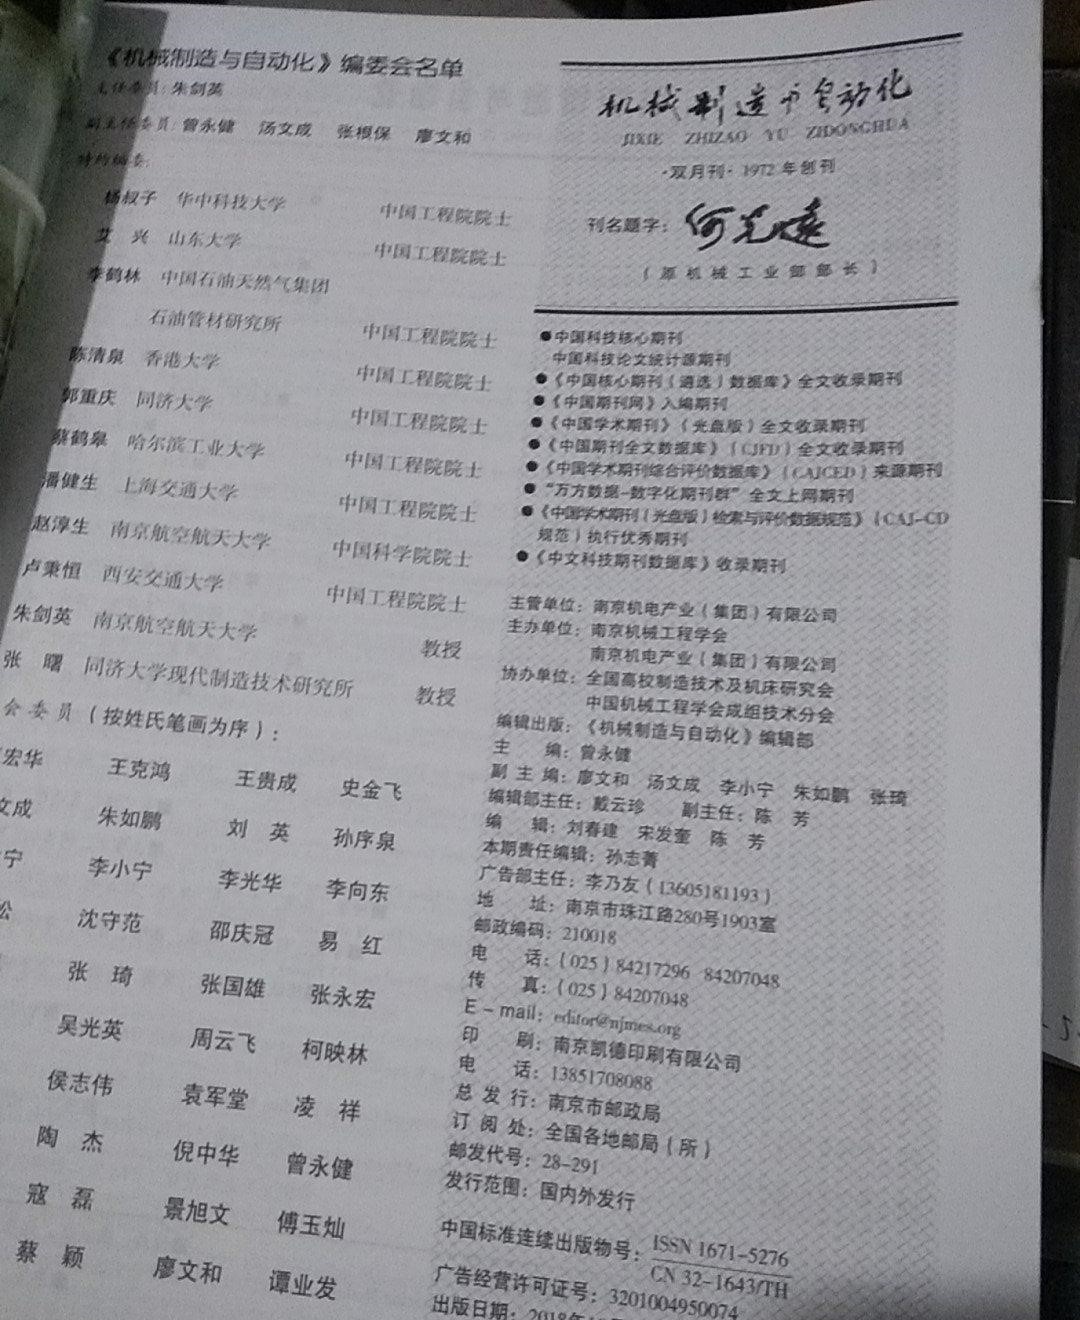 《机械制造与自动化》编委会名单
主任委员:朱剑英
副主任委员:曾永健 汤文成 张根保 廖文和
特约编委:
杨叔子 华中科技大学 中国工程院院士
艾 兴 山东大学 中国工程院院士
李鹤林 中国石油天然气集团
石油管材研究所 中国工程院院士
陈清泉 香港大学 中国工程院院士
郭重庆 同济大学 中国工程院院士
蔡鹤皋 哈尔滨工业大学 中国工程院院士
潘健生 上海交通大学 中国工程院院士
赵淳生 南京航空航天大学 中国科学院院士
卢秉恒 西安交通大学 中国工程院院士
朱剑英 南京航空航天大学 教授
张 曙 同济大学现代制造技术研究所 教授
会委员(按姓氏笔画为序):
宏华 王克鸿 王贵成 史金飞
文成 朱如鹏 刘 英 孙序泉
宁 李小宁 李光华 李向东
松 沈守范 邵庆冠 易 红
张 琦 张国雄 张永宏
吴光英 周云飞 柯映林
侯志伟 袁军堂 凌 祥
陶 杰 倪中华 曾永健
寇 磊 景旭文 傅玉灿
蔡 颖 廖文和 谭业发
机械制造与自动化
JIXIE ZHIZAO YU ZIDONGHUA
·双月刊· 1972年创刊
刊名题字: 何光远
(原机械工业部部长)
●中国科技核心期刊
中国科技论文统计源期刊
●《中国核心期刊(遴选)数据库》全文收录期刊
●《中国期刊网》入编期刊
●《中国学术期刊》(光盘版)全文收录期刊
●《中国期刊全文数据库》(CJFD)全文收录期刊
●《中国学术期刊综合评价数据库》(CAJCED)来源期刊
●“万方数据-数字化期刊群”全文上网期刊
●《中国学术期刊(光盘版)检索与评价数据规范》(CAJ-CD
规范)执行优秀期刊
●《中文科技期刊数据库》收录期刊
主管单位:南京机电产业(集团)有限公司
主办单位:南京机械工程学会
南京机电产业(集团)有限公司
协办单位:全国高校制造技术及机床研究会
中国机械工程学会成组技术分会
编辑出版:《机械制造与自动化》编辑部
主 编:曾永健
副 主 编:廖文和 汤文成 李小宁 朱如鹏 张琦
编辑部主任:戴云珍 副主任:陈 芳
编 辑:刘春建 宋发奎 陈 芳
本期责任编辑:孙志菁
广告部主任:李乃友(13605181193)
地 址:南京市珠江路280号1903室
邮政编码:210018
电 话:(025)84217296 84207048
传 真:(025)84207048
E-mail:editor@njmes.org
印 刷:南京凯德印刷有限公司
电 话:13851708088
总 发 行:南京市邮政局
订 阅 处:全国各地邮局(所)
邮发代号:28-291
发行范围:国内外发行
中国标准连续出版物号:ISSN 1671-5276
CN 32-1643/TH
广告经营许可证号:3201004950074
出版日期:2018年